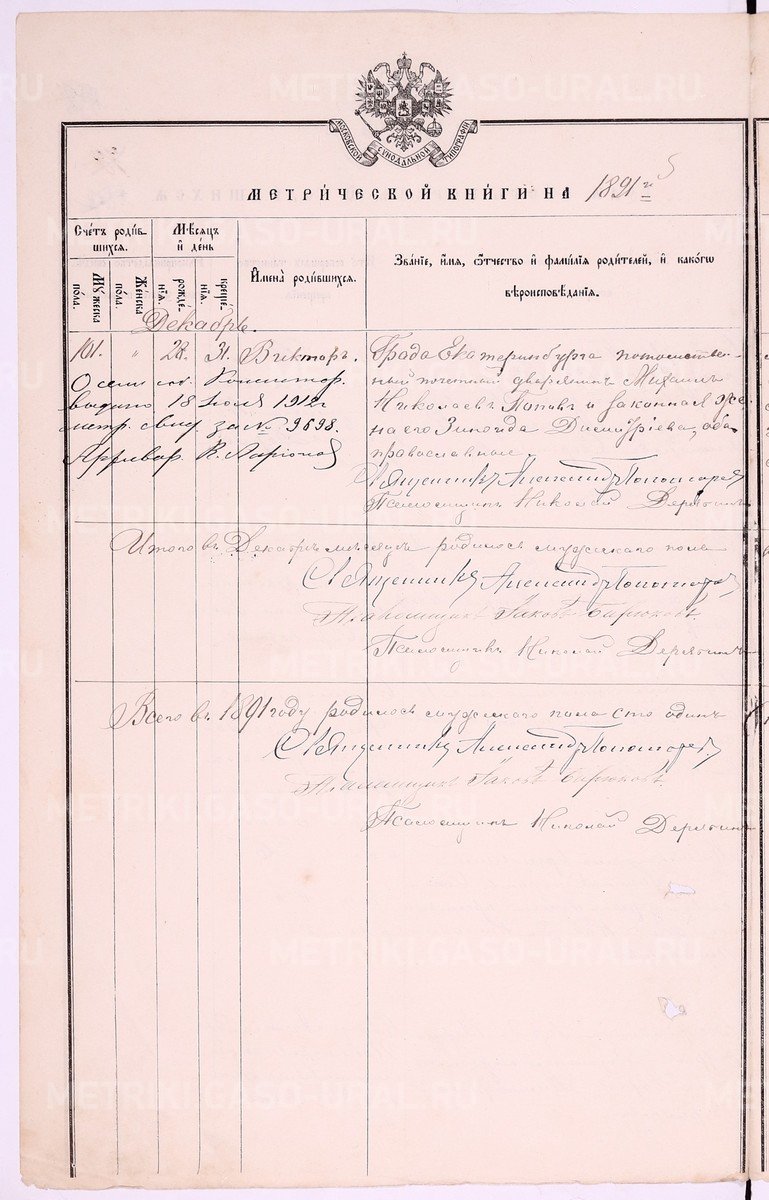 METRIKI.GASO-URAL.RU
МОСКОВСКОЙ СѴНОДАЛЬНОЙ ТИПОГРАФІИ
МЕТРИЧЕСКОЙ КНИГИ НА 1891 г. 5
Счетъ родив-
шихся.
Мѣсяцъ
и день
Мужеска
пола.
Женска
пола.
рожде-
нія.
креще-
нія.
Имена родившихся.
Званіе, имя, отчество и фамилія родителей, и какогѡ
вѣроисповѣданія.
Декабрь.
101. " 28. 31. Викторъ. Града Екатеринбурга потомствен-
ный почетный дворянинъ Михаилъ
Николаевъ Поповъ и законная же-
на его Зинаида Димитріева, оба
православные.
О семъ соб. Консистор.
выдано 18 Іюля 1912 г
метр. свид за № 9698.
Архивар. В. Ларіонов
Священникъ Александръ Пономаревъ
Псаломщикъ Николай Дерябинъ
Итого въ Декабрѣ мѣсяцѣ родилось мужескаго пола
Священникъ Александръ Пономаревъ
Псаломщикъ Іаковъ Бирюковъ.
Псаломщикъ Николай Дерябинъ
Всего въ 1891 году родилось мужескаго пола сто одинъ
Священникъ Александръ Пономаревъ.
Псаломщикъ Іаковъ Бирюковъ.
Псаломщикъ Николай Дерябинъ